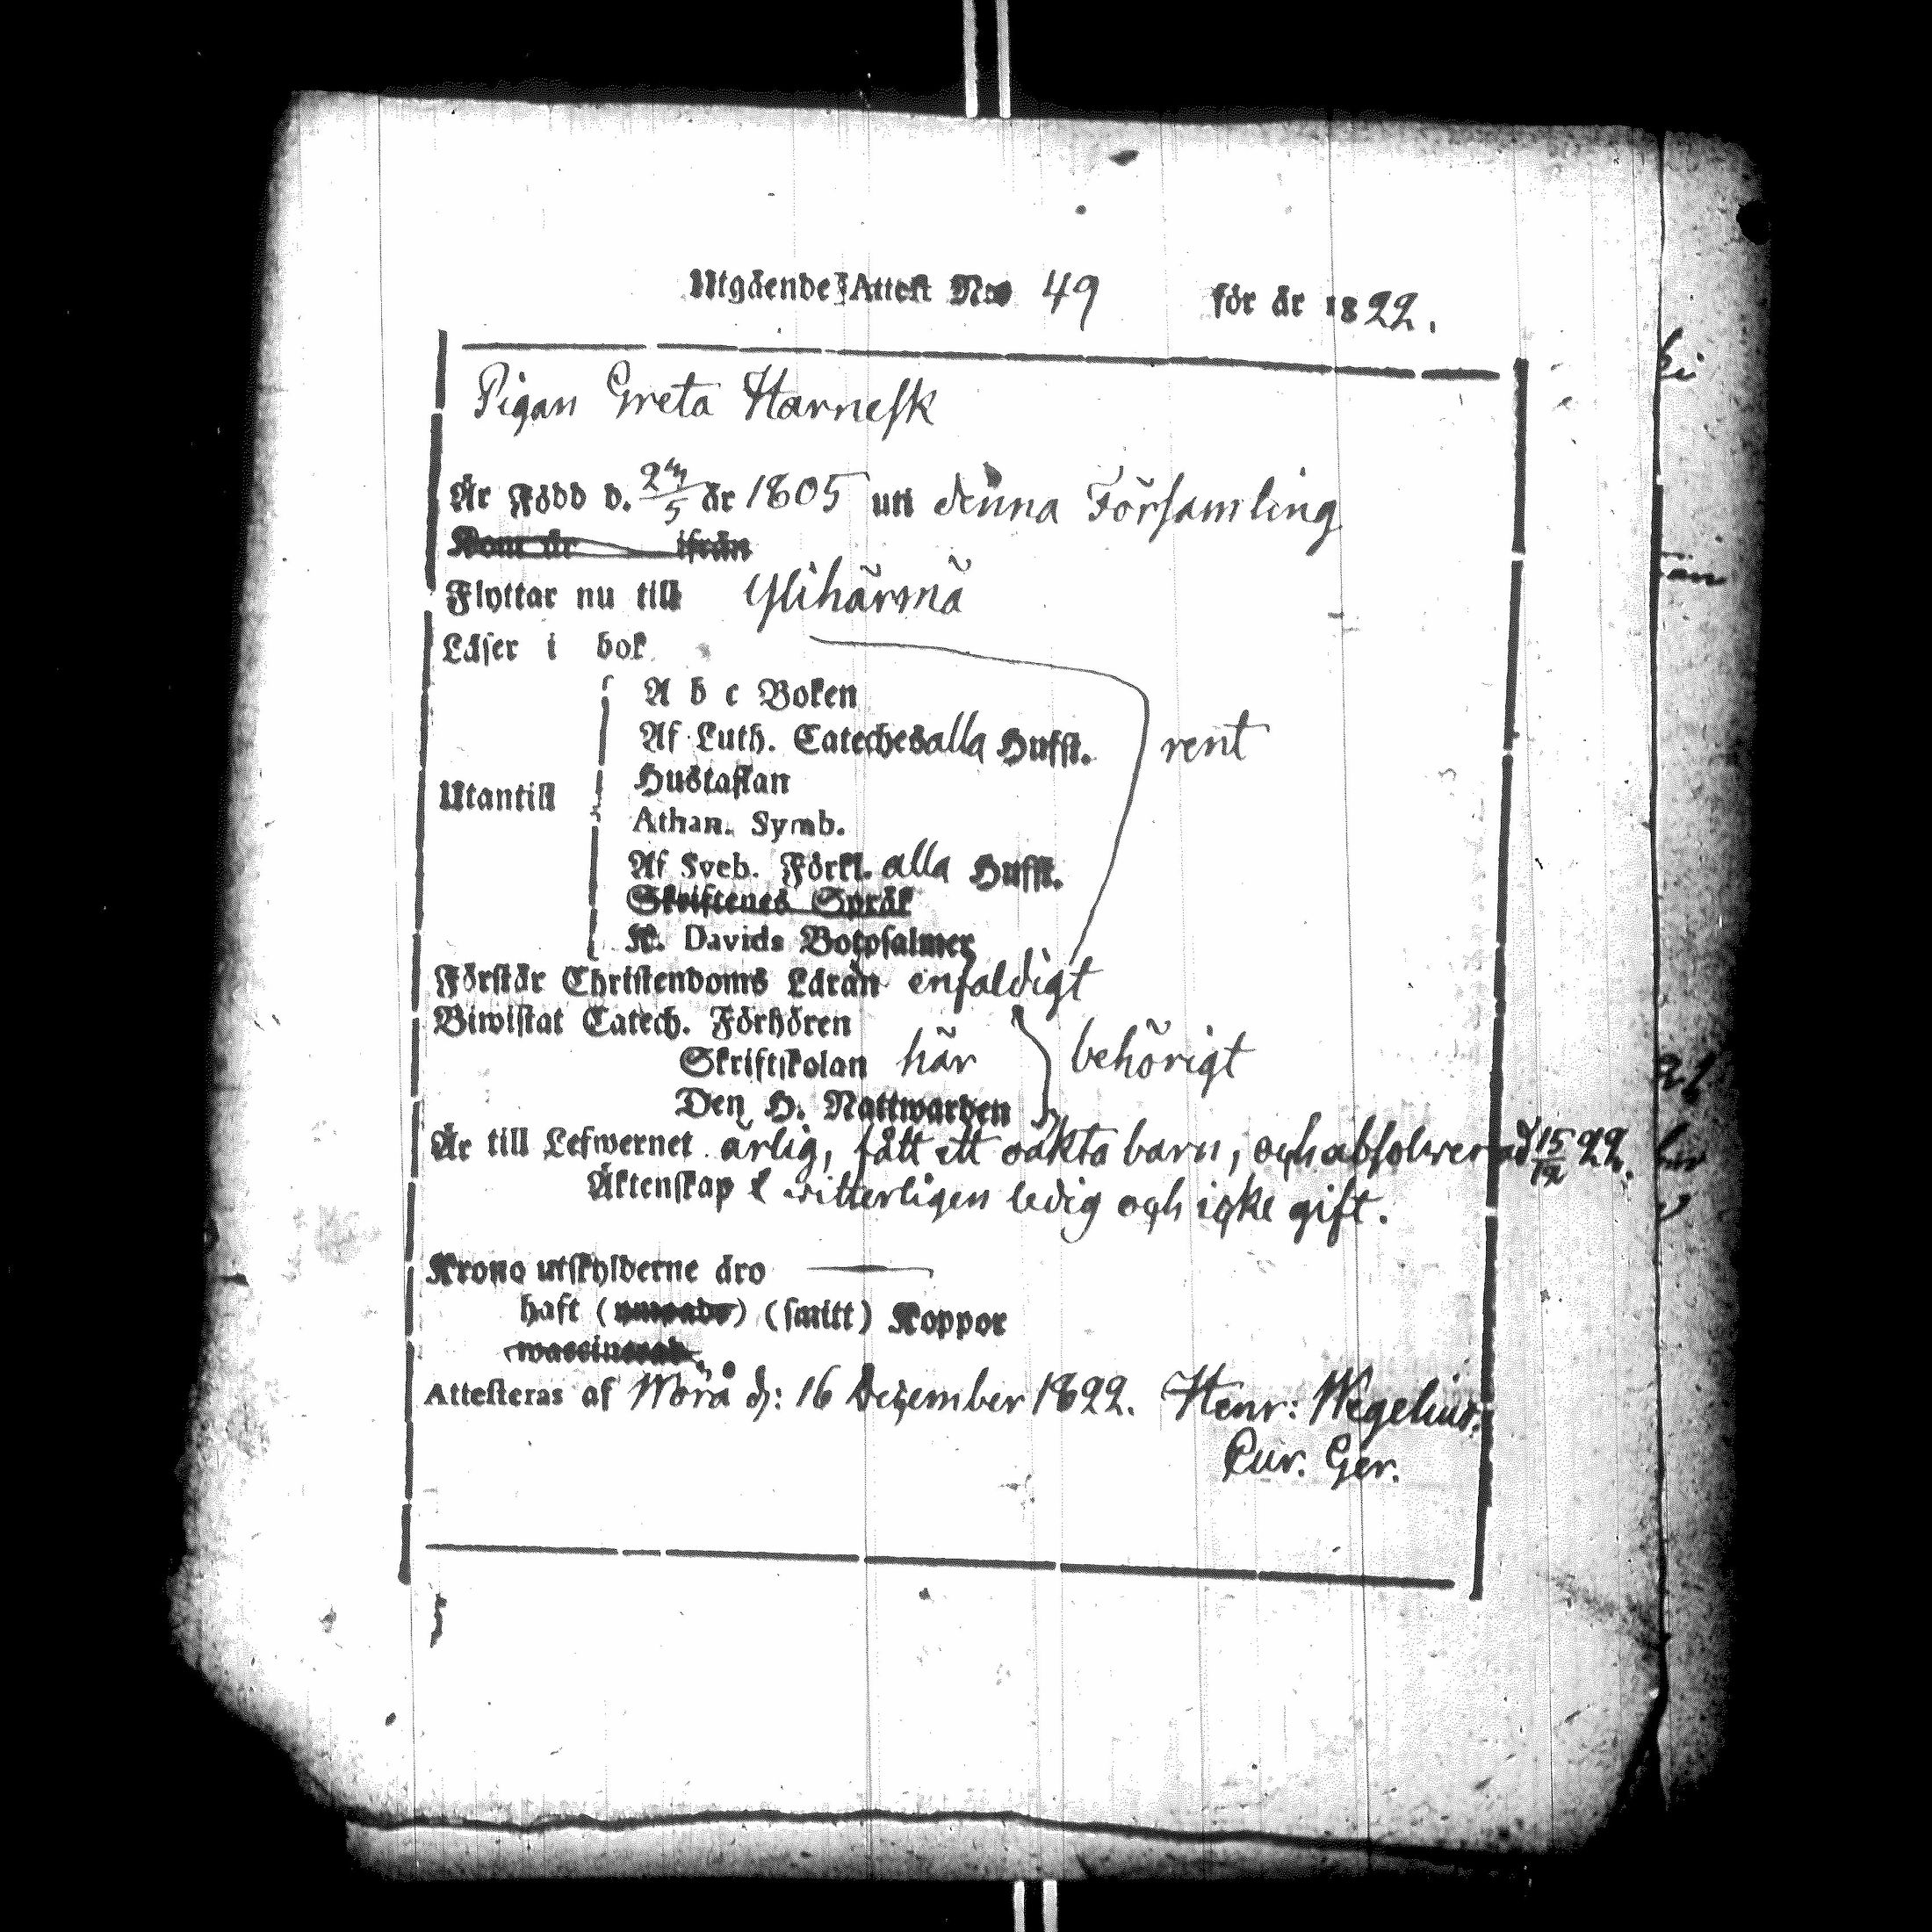 Utgående Attest No 49 för år 1822.
Pigan Greta Harnesk
Är Född d. 24/5 år 1805 uti denna Församling
Kom år ifrån
Flyttar nu till Ylihärmä
Läser i bok
A b c Boken
Af Luth. Catechesalla Hufst. rent
Hustaflan
Utantill
Athan. Symb.
Af Sveb. Förkl. alla Hufst.
Skriftenes Språk
K. Davids Botpsalmer
Förstår Christendoms Läran enfaldigt
Biwistat Catech. Förhören
Skriftskolan här behörigt
Den H. Nattwarden
Är till Lefwernet ärlig, fått ett oäkta barn, och absolverad 15/12 22.
Äktenskap witterligen ledig och icke gift.
Krono utskylderne äro —
haft ( ) (smitt) Koppor
Attesteras af Wörå d: 16 December 1822. Henr: Wegelius.
Cur. Ger.